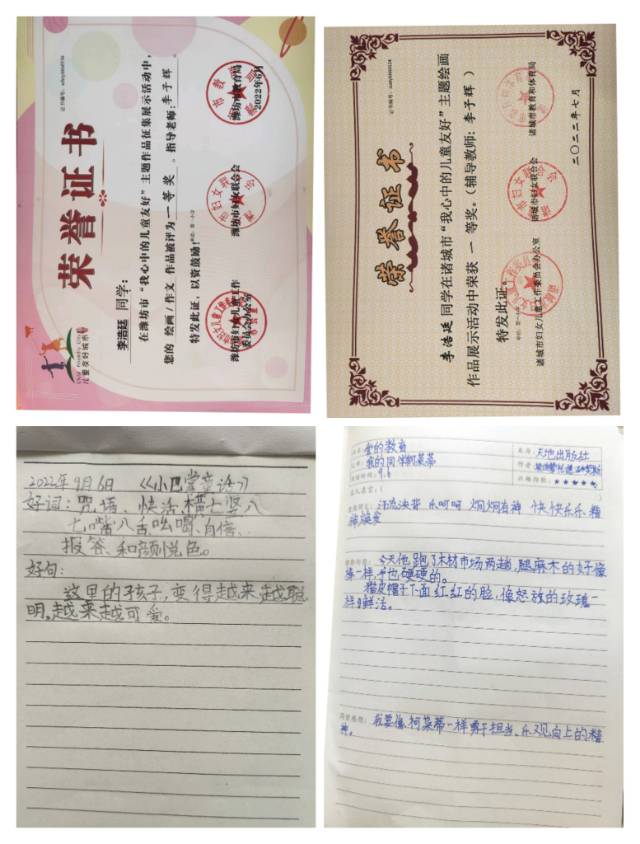 荣誉证书
李浩廷 同学：
在潍坊市“我心中的儿童友好”主题作品征集展示活动中，
您的 绘画/作文 作品被评为 一等奖 。指导老师：李子辉
特发此证，以资鼓励！
潍坊市妇女儿童工作
委员会办公室
潍坊市妇女联合会
潍坊市教育局
2022年6月
儿童友好城市
荣誉证书
李浩廷 同学在诸城市“我心中的儿童友好”主题绘画
作品展示活动中荣获 一 等奖。（辅导教师：李子辉 ）
特发此证。
诸城市妇女儿童工作委员会办公室
诸城市妇女联合会
诸城市教育和体育局
二〇二二年七月
2022年9月6日 《小巴掌童话》
好词：咒语、快活、横七竖八
七嘴八舌、吆喝、自信、
报答、和颜悦色。
好句：
这里的孩子，变得越来越聪
明，越来越可爱。
爱的教育
天地出版社
我的同学柯莱蒂
9.6
汗流浃背 乐呵呵 炯炯有神 快快乐乐 精
神焕发
今天他跑了木材市场两趟，腿麻木的好像
猫皮帽子下面红红的脸，像怒放的玫瑰一
样鲜活。
我要像柯莱蒂一样勇于担当、乐观向上的精
神。